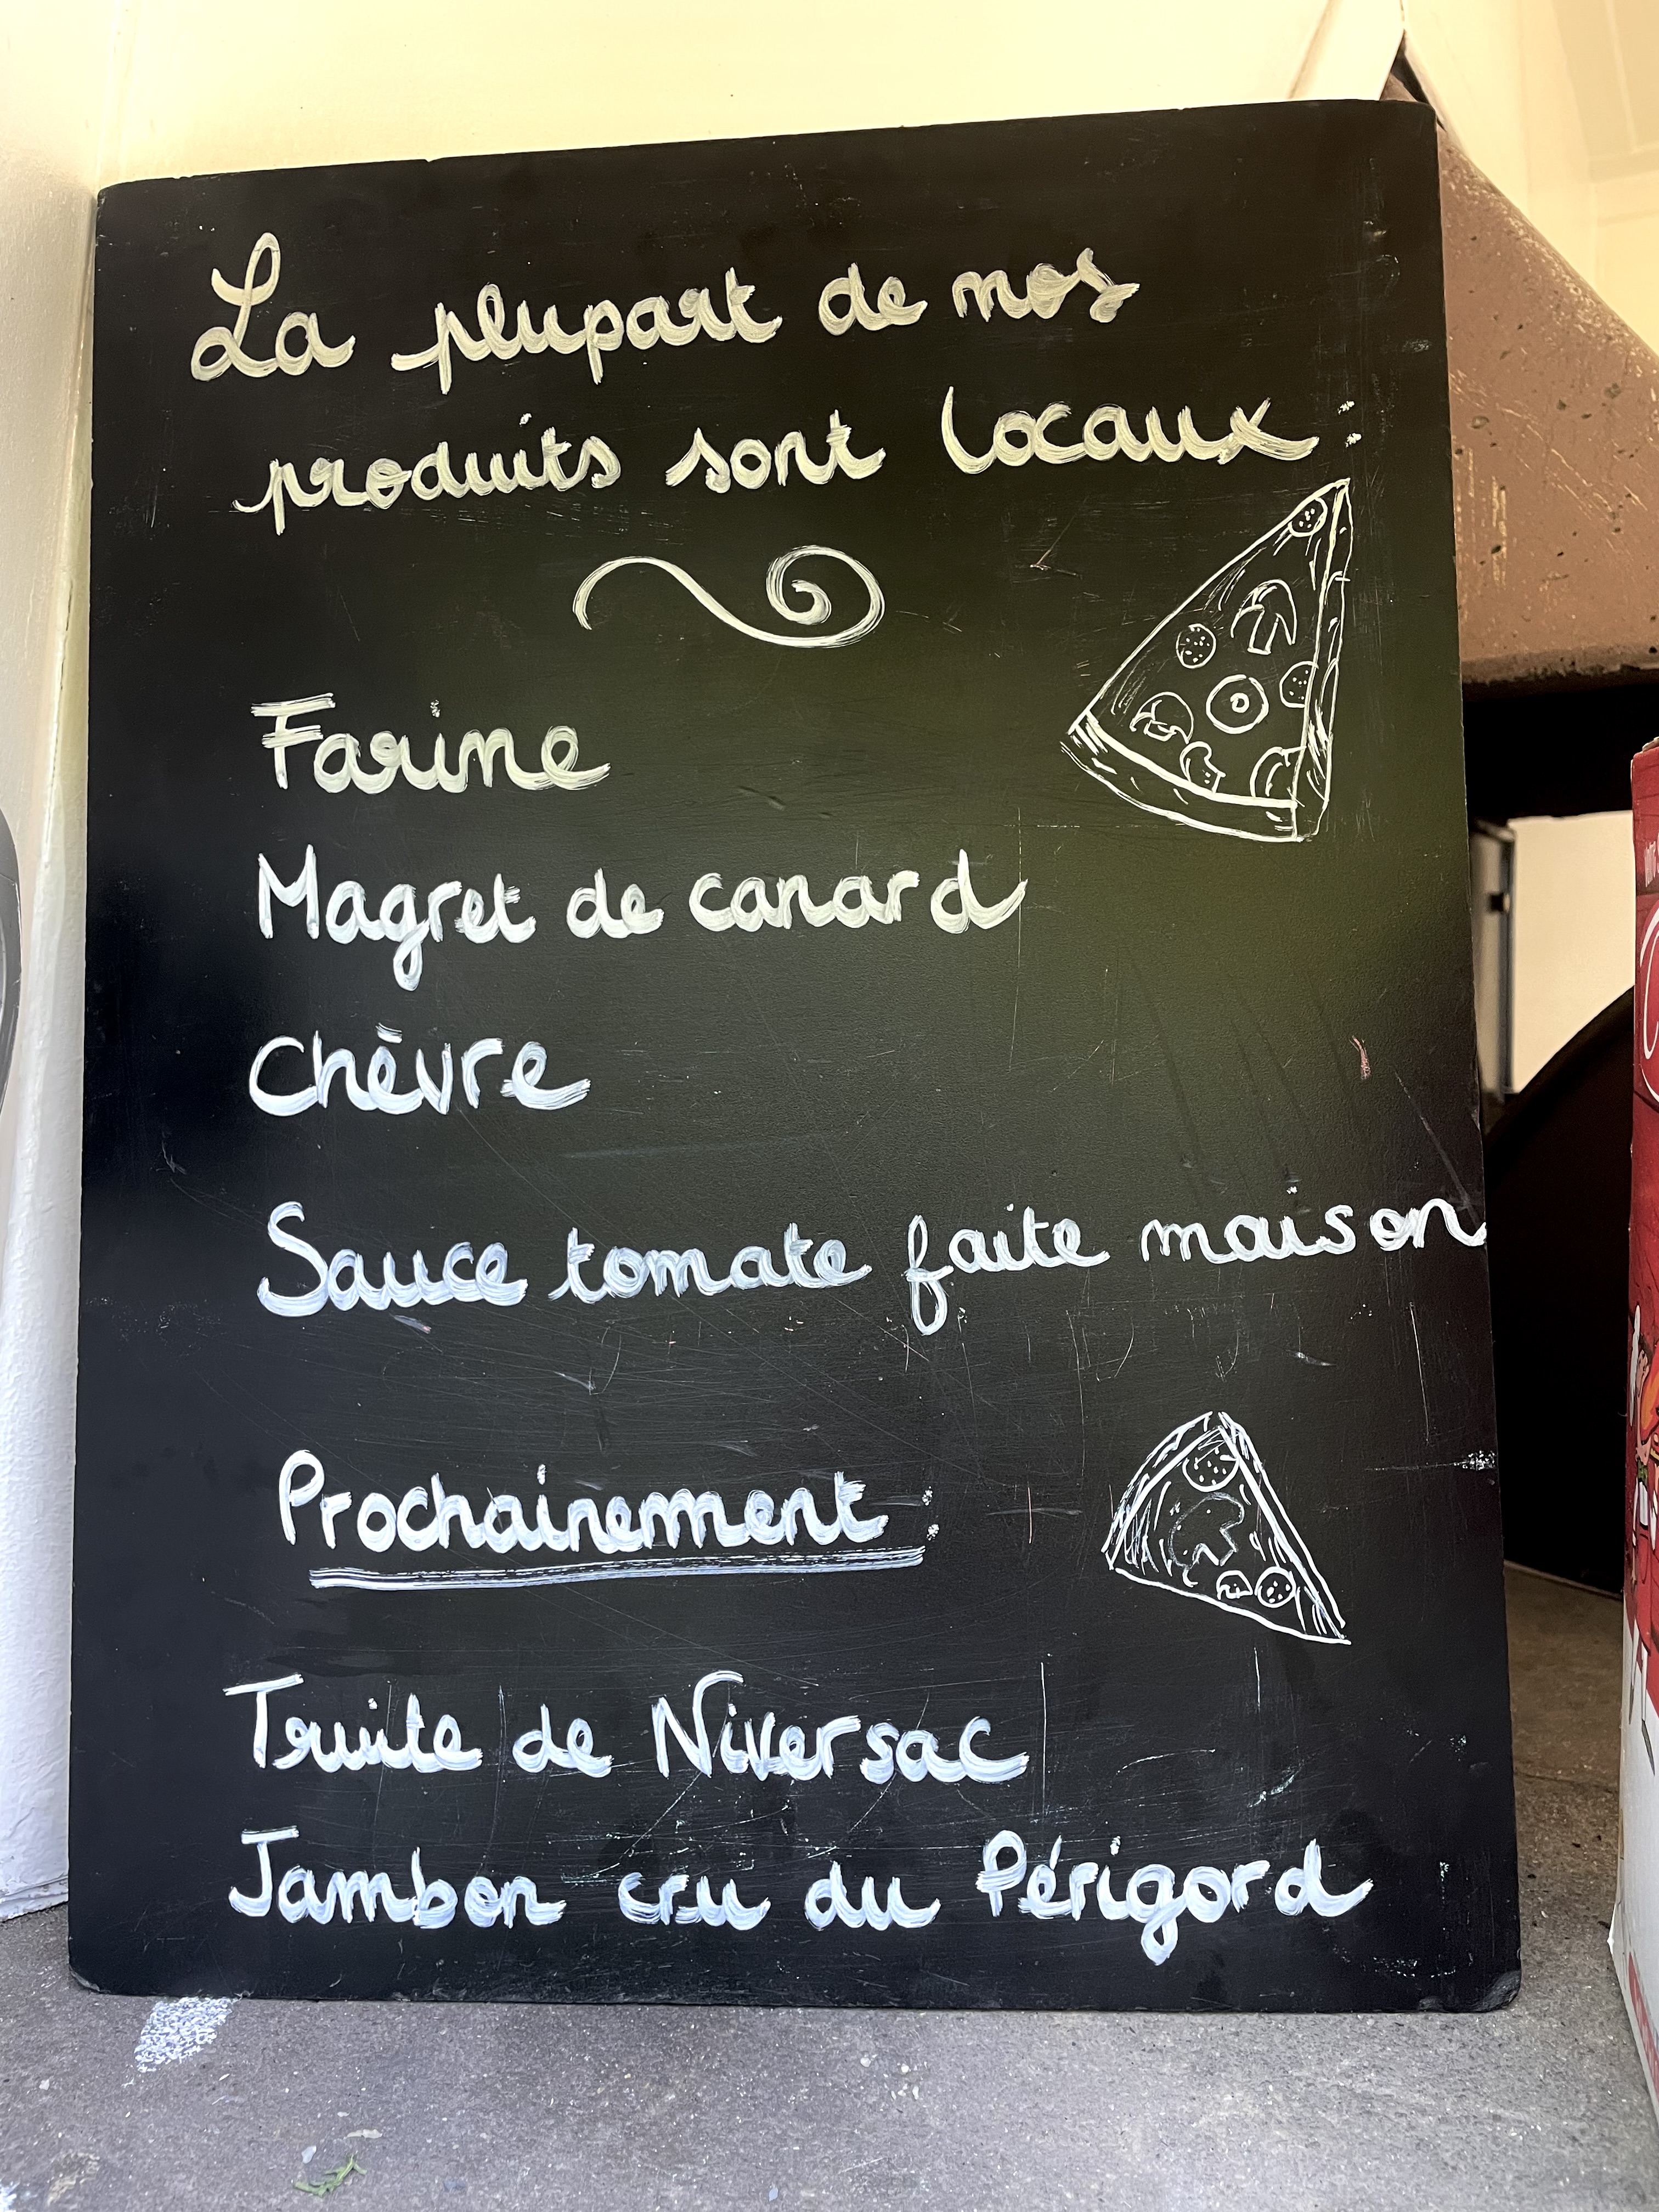 La plupart de nos
produits sont locaux :
Farine
Magret de canard
Chèvre
Sauce tomate faite maison
Prochainement :
Truite de Niversac
Jambon cru du Périgord